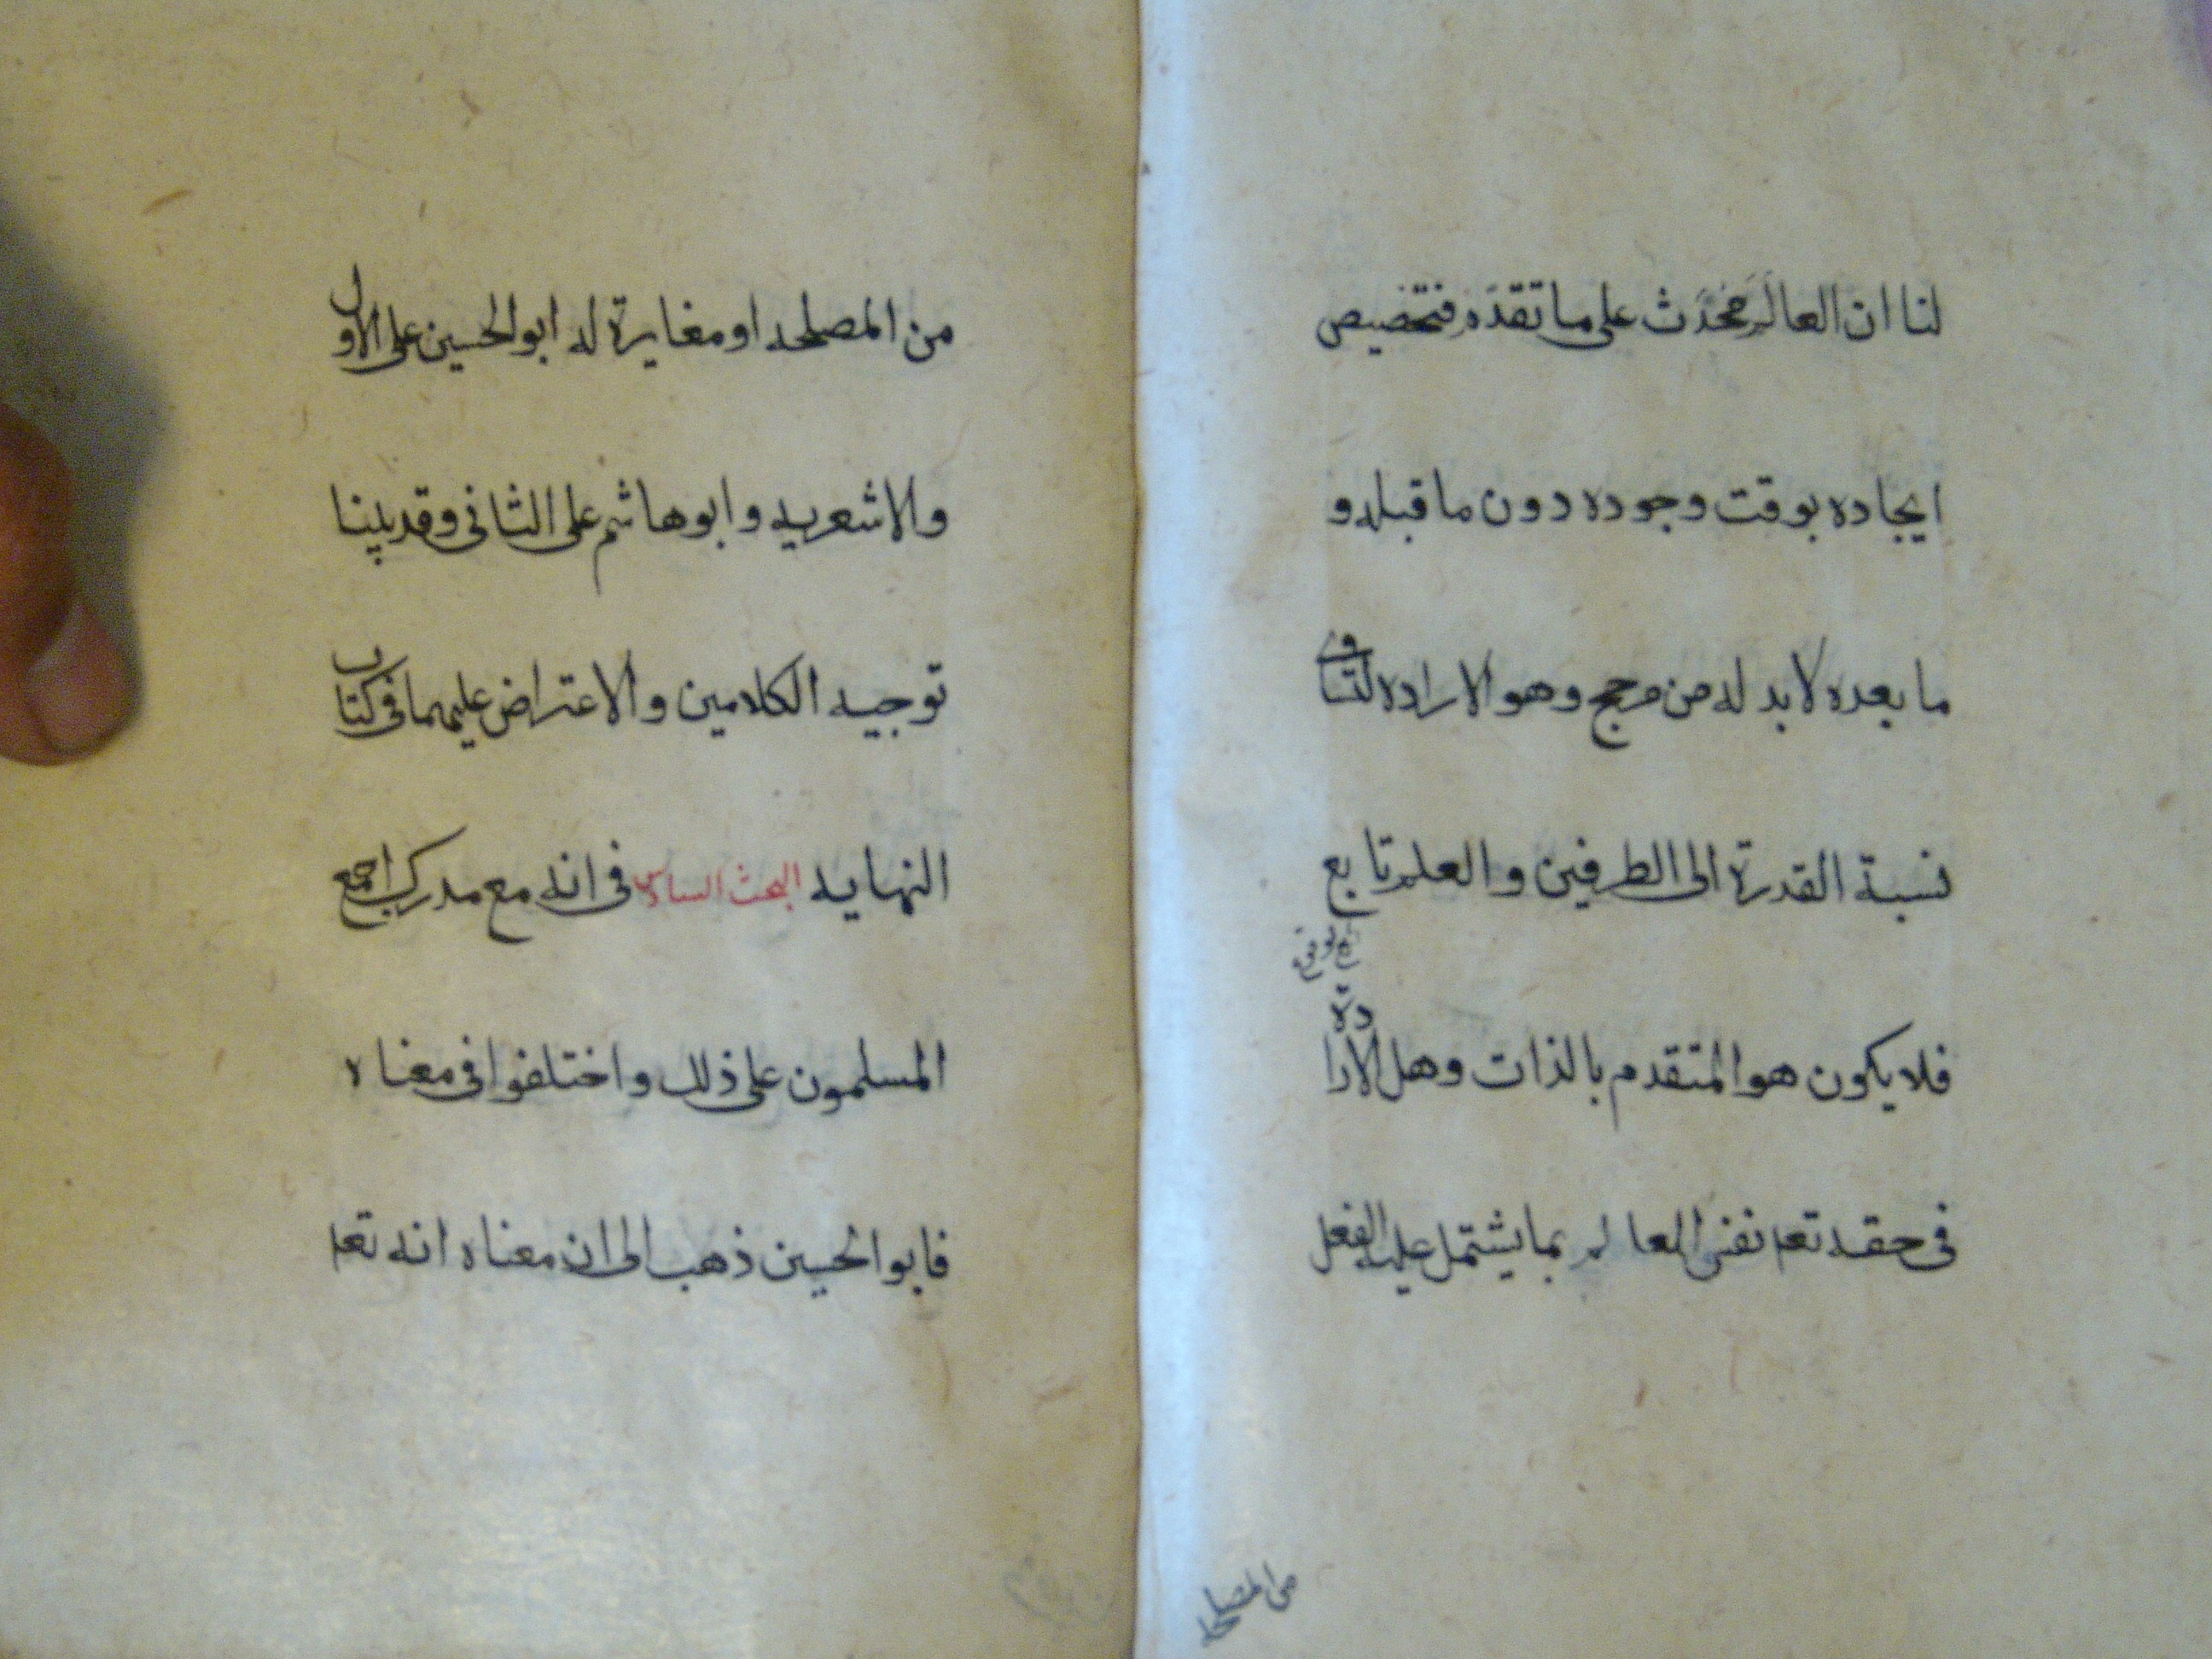 لنا ان العالَم مُحْدَث على ما تقدَّم فتخصيص
ايجاده بوقت وجوده دون ما قبله و
ما بعده لا بد له من مرجح وهو الاراده لتساوى
نسبة القدرة الى الطرفين والعلم تابع
فلا يكون هو المتقدم بالذات وهل الارادة
فى حقه تعا نفس العالم بما يشتمل عليه الفعل
من المصلحه او مغايرة له ابو الحسين على الاول
والاشعريه وابو هاشم على الثانى وقد بينا
توجيه الكلامين والاعتراض عليهما فى كتاب
النهايه البحث السادس فى انه مع مدرك اجمع
المسلمون على ذلك واختلفوا فى معناه
فابو الحسين ذهب الى ان معناه انه تعا